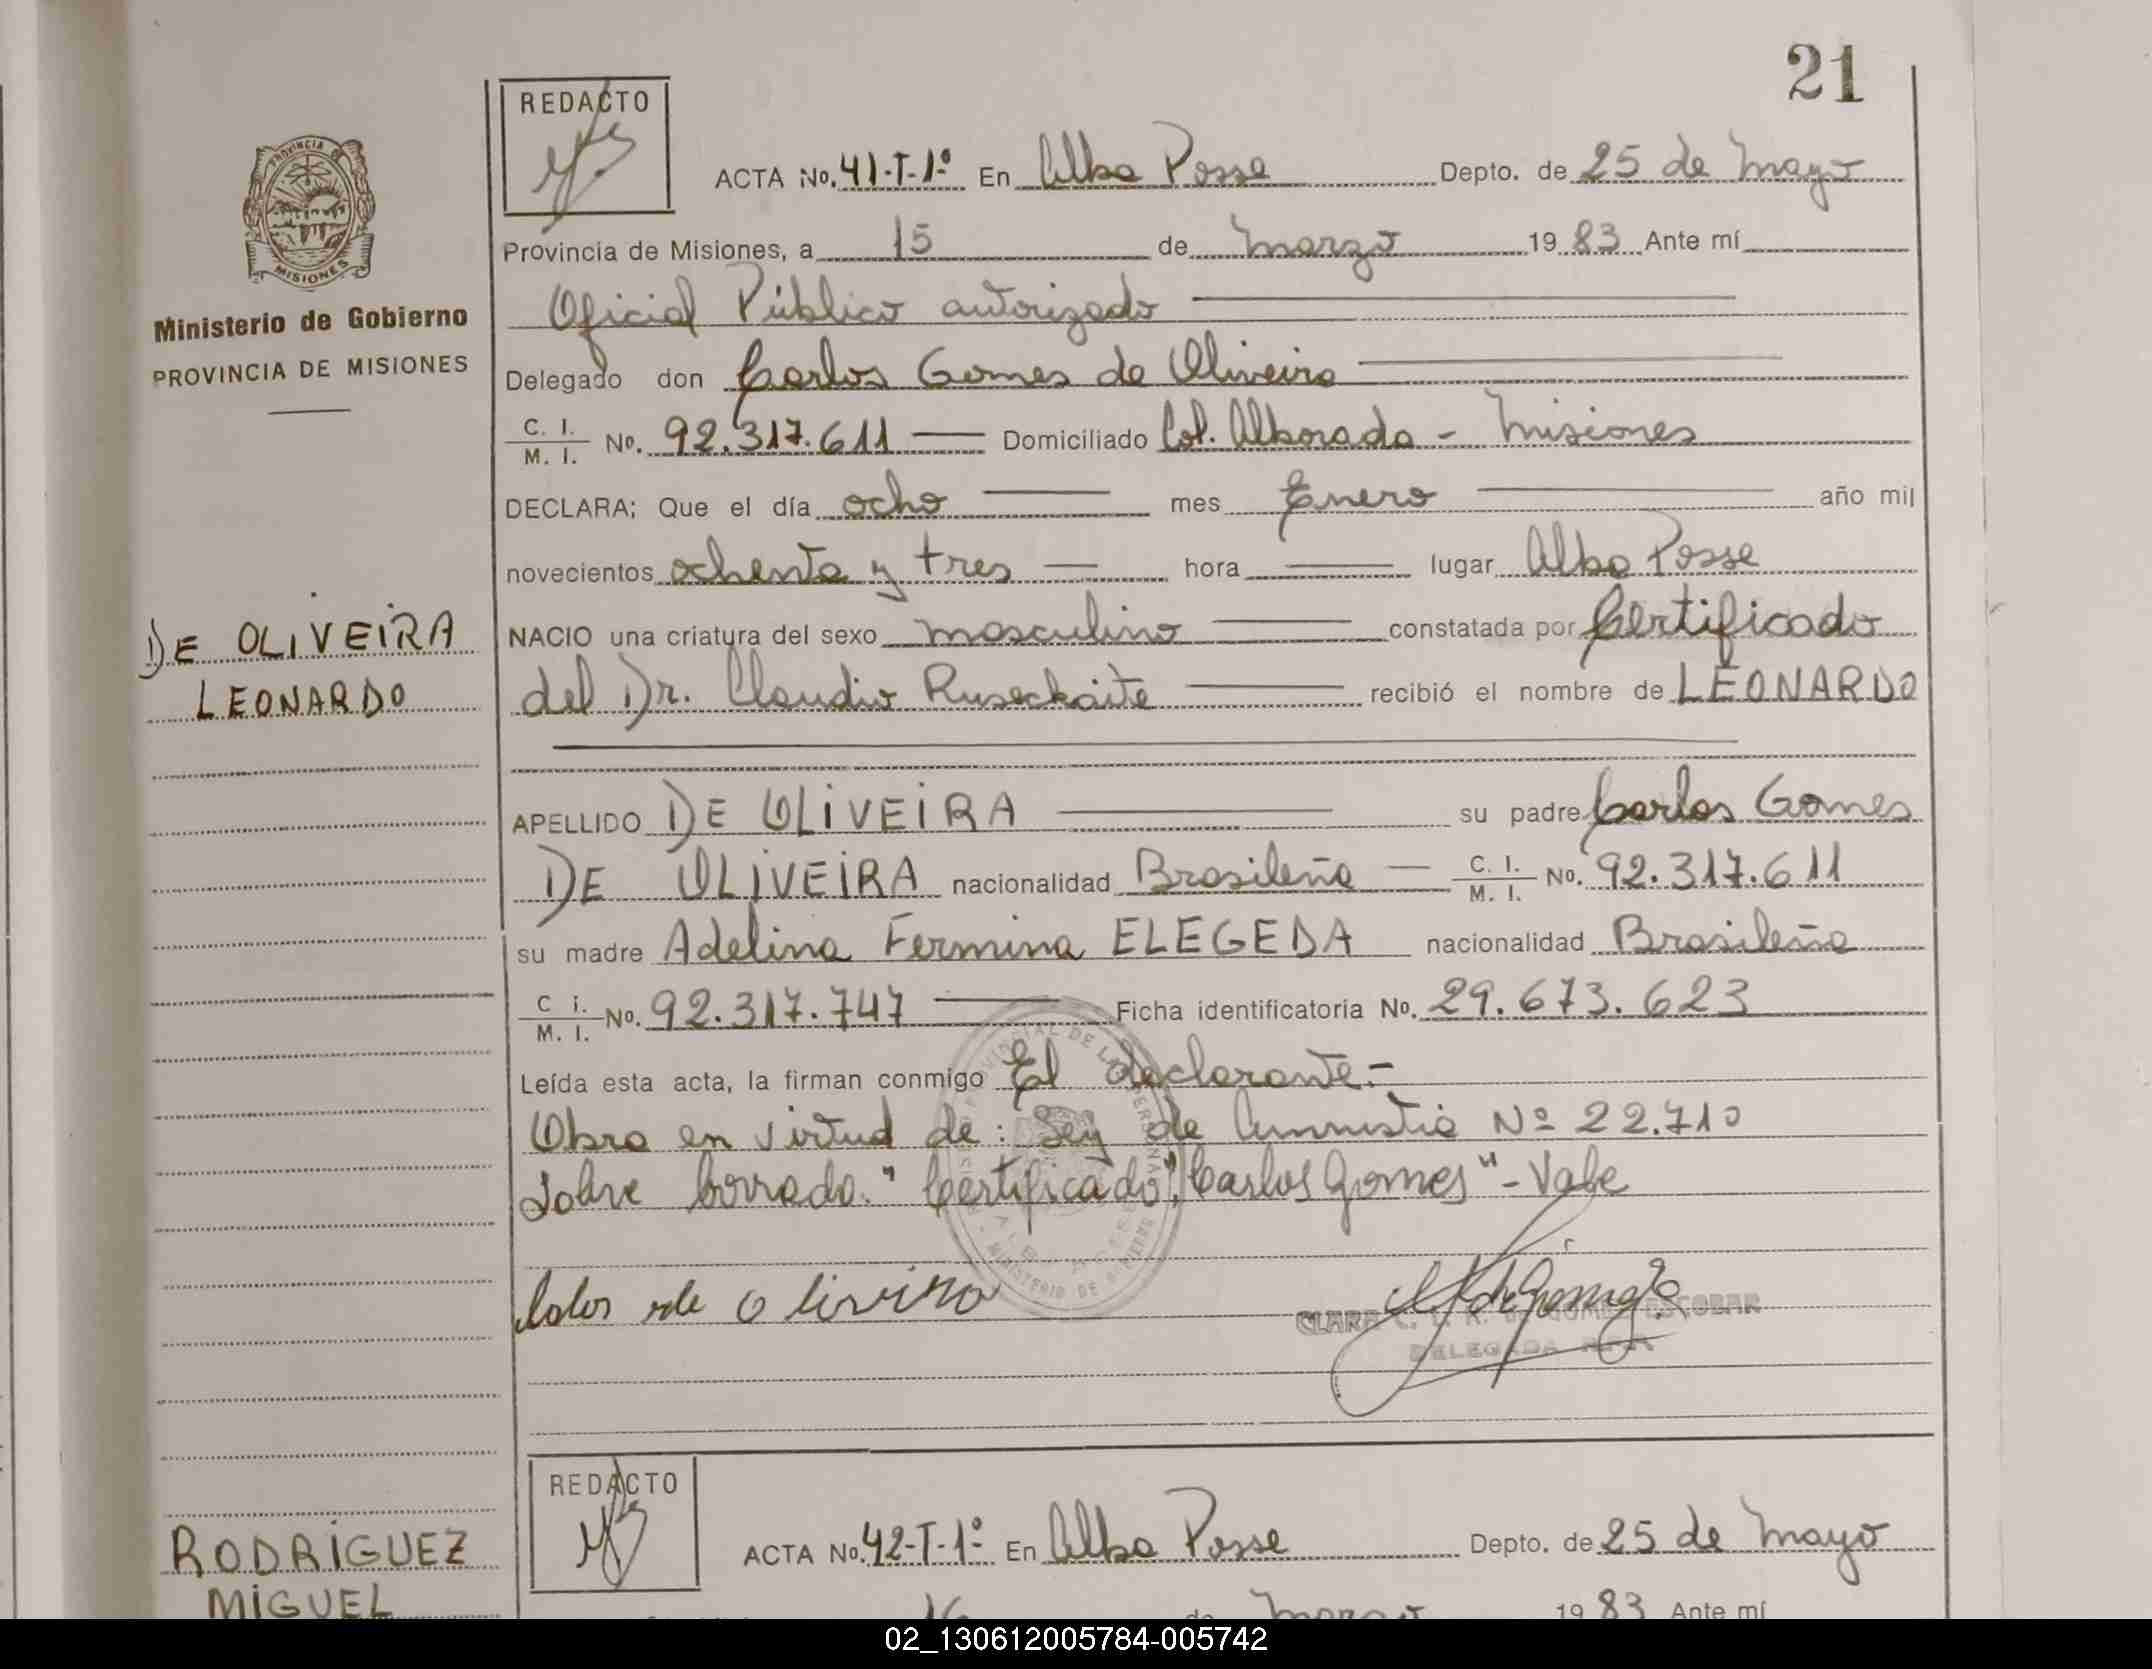 21
REDACTO
ACTA No. 41-T-1º En Alba Posse Depto. de 25 de Mayo
Provincia de Misiones, a 15 de Marzo 1983 Ante mí
Oficial Público autorizado
Delegado don Carlos Gomes de Oliveira
C. I. / M. I. No. 92.317.611 Domiciliado Col. Alborada - Misiones
DECLARA; Que el día ocho mes Enero año mil
novecientos ochenta y tres hora lugar Alba Posse
NACIO una criatura del sexo masculino constatada por Certificado
del Dr. Claudio Ruseckaite recibió el nombre de LEONARDO
APELLIDO DE OLIVEIRA su padre Carlos Gomes
DE OLIVEIRA nacionalidad Brasileña C. I. / M. I. No. 92.317.611
su madre Adelina Fermina ELEGEDA nacionalidad Brasileña
C i. / M. I. No. 92.317.747 Ficha identificatoria No. 29.673.623
Leída esta acta, la firman conmigo El declarante.-
Obra en virtud de: Ley de Amnistia Nº 22.710
Sobre borrado. "Certificado", "Carlos Gomes" - Vale
de Oliviro
CLARA ESCOBAR
DELEGADA
PROVINCIA DE
MISIONES
Ministerio de Gobierno
PROVINCIA DE MISIONES
DE OLIVEIRA
LEONARDO
REDACTO
ACTA No. 42-T-1º En Alba Posse Depto. de 25 de Mayo
16 de Marzo 1983 Ante mí
RODRIGUEZ
MIGUEL
02_130612005784-005742